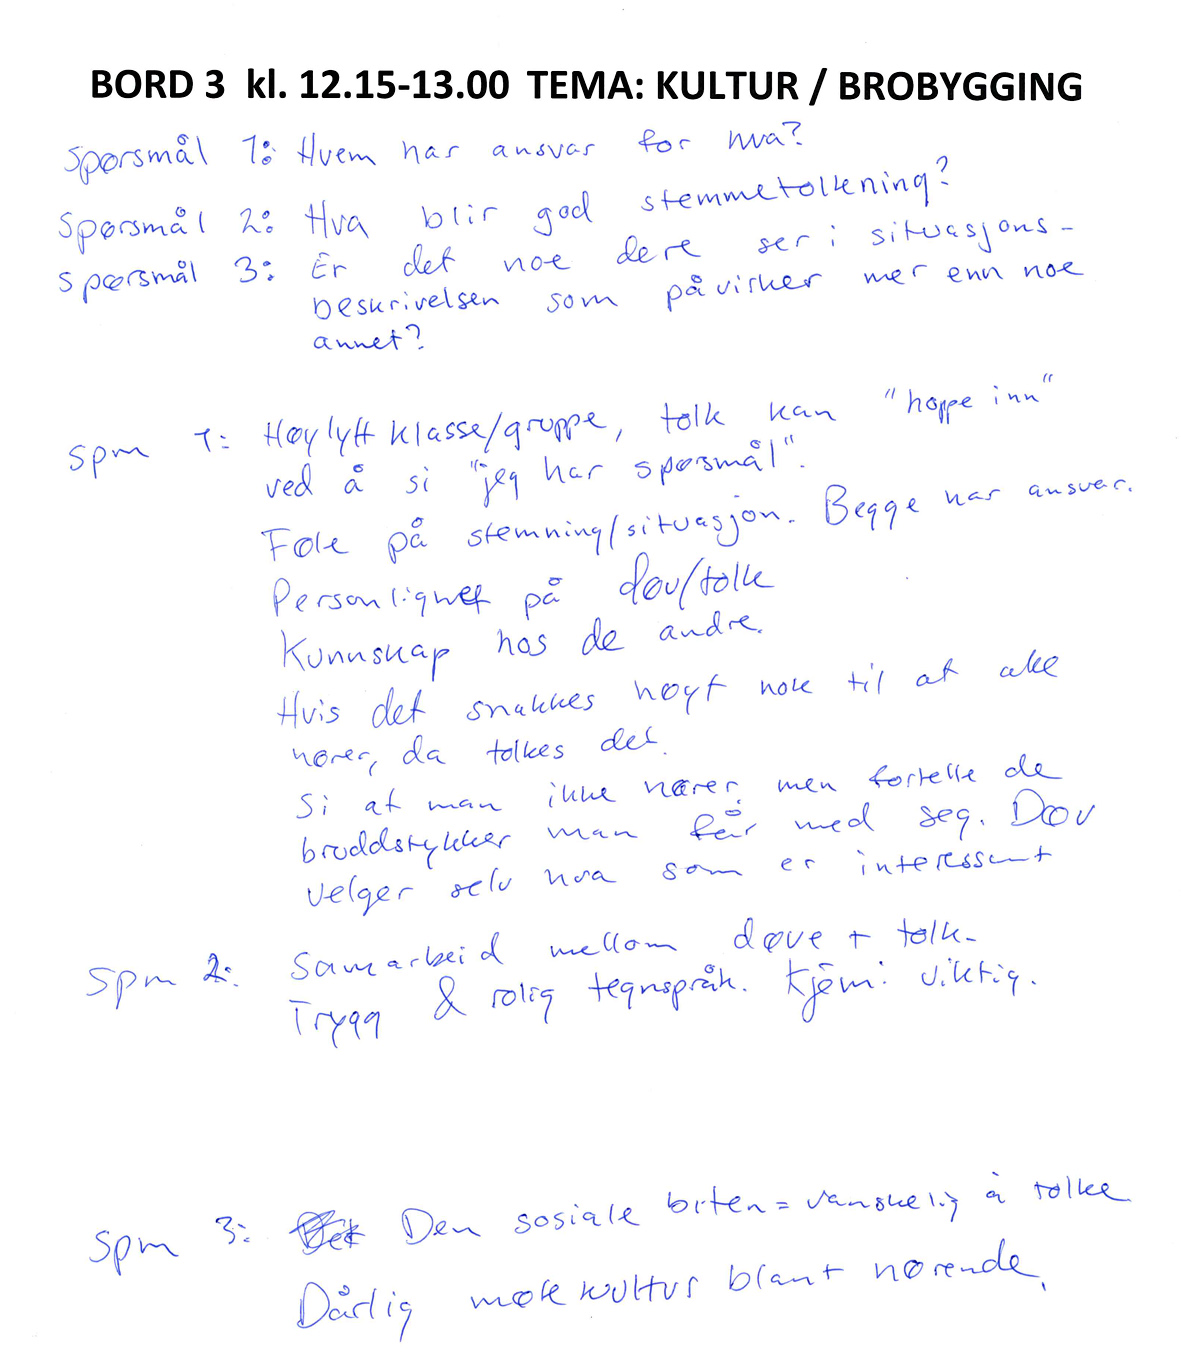 BORD 3 kl. 12.15-13.00 TEMA: KULTUR / BROBYGGING
Spørsmål 1: Hvem har ansvar for hva?
Spørsmål 2: Hva blir god stemmetolkning?
Spørsmål 3: Er det noe dere ser i situasjons-
beskrivelsen som påvirker mer enn noe
annet?
Spm 1: Høylytt klasse/gruppe, tolk kan "hoppe inn"
ved å si "jeg har spørsmål".
Føle på stemning/situasjon. Begge har ansvar.
Personlighet på døv/tolk
Kunnskap hos de andre.
Hvis det snakkes høyt nok til at alle
hører, da tolkes det.
Si at man ikke hører, men fortelle de
bruddstykker man får med seg. Døv
velger selv hva som er interessant
Spm 2: Samarbeid mellom døve + tolk.
Trygg & rolig tegnspråk. Kjemi viktig.
Spm 3: Den sosiale biten = vanskelig å tolke
Dårlig møtekultur blant hørende.